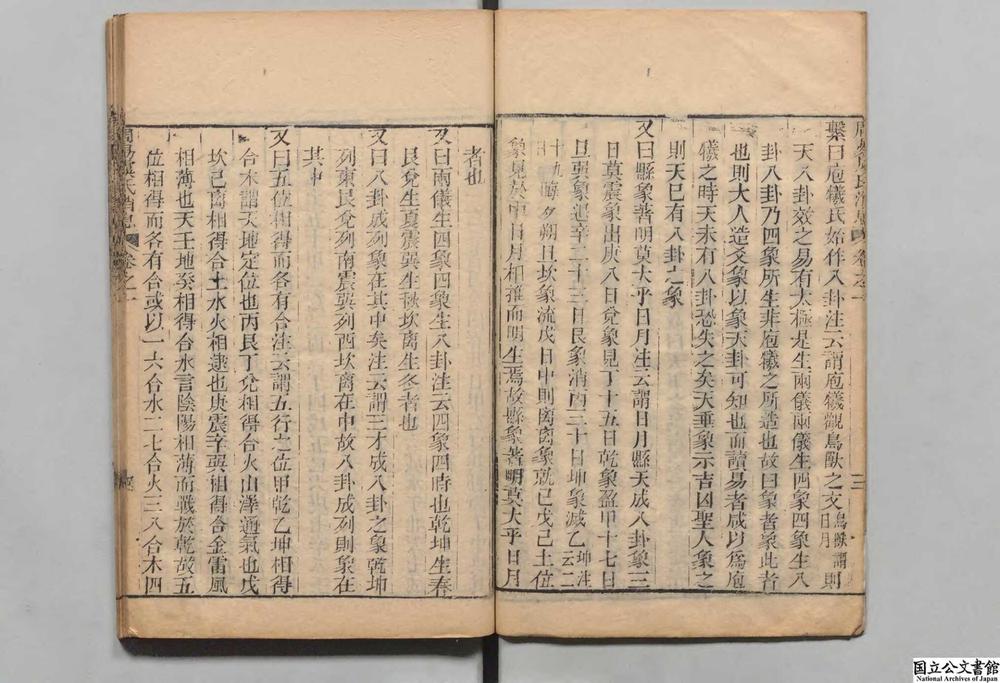 繫曰庖犧氏始作八卦注云謂庖犧觀鳥獸之文鳥獸謂日月則
天八卦效之易有太極是生兩儀兩儀生四象四象生八
卦八卦乃四象所生非庖犧之所造也故曰象者象此者
也則大人造爻象以象天卦可知也而讀易者咸以爲庖
犧之時天未有八卦恐失之矣天垂象示吉凶聖人象之
則天已有八卦之象
又曰縣象著明莫大乎日月注云謂日月縣天成八卦象三
日莫震象出庚八日兌象見丁十五日乾象盈甲十七日
旦巽象退辛二十三日艮象消丙三十日坤象滅乙坤注云二
十九晦夕朔旦坎象流戊日中則离离象就己戊己土位
象見於中日月相推而明生焉故縣象著明莫大乎日月
者也
又曰兩儀生四象四象生八卦注云四象四時也乾坤生春
艮兌生夏震巽生秋坎离生冬者也
又曰八卦成列象在其中矣注云謂三才成八卦之象乾坤
列東艮兌列南震巽列西坎离在中故八卦成列則象在
其中
又曰五位相得而各有合注云謂五行之位甲乾乙坤相得
合木謂天地定位也丙艮丁兌相得合火山澤通氣也戊
坎己离相得合土水火相逮也庚震辛巽相得合金雷風
相薄也天壬地癸相得合水言陰陽相薄而戰於乾故五
位相得而各有合或以一六合水二七合火三八合木四
周易虞氏消息 卷之一
三
国立公文書館
National Archives of Japan